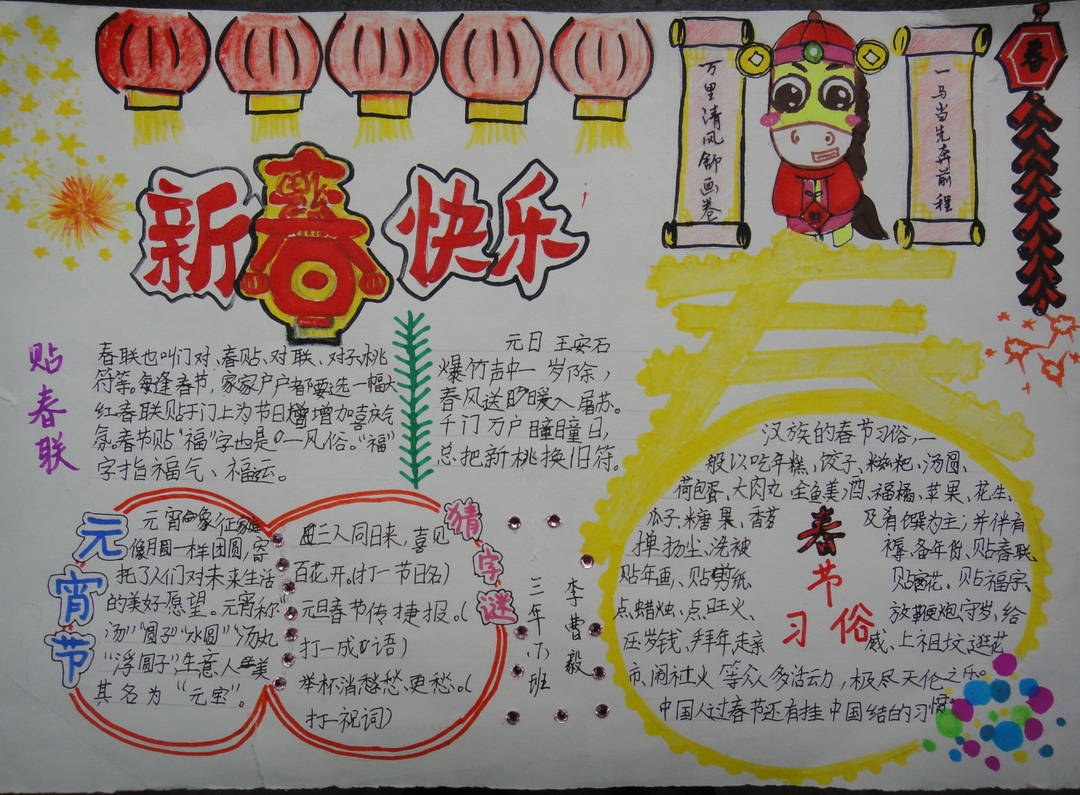 新春快乐
万里清风舒画卷
一马当先奔前程
春
贴春联
春联也叫门对、春贴、对联、对子、桃
符等。每逢春节，家家户户都要选一幅大
红春联贴于门上为节日增加喜庆气
氛。春节贴“福”字也是一风俗。“福”
字指福气、福运。
元日 王安石
爆竹声中一岁除，
春风送暖入屠苏。
千门万户曈曈日，
总把新桃换旧符。
元宵节
元宵象征
像月圆一样团圆，寄
托了人们对未来生活
的美好愿望。元宵称“
汤”“圆子”“水圆”“汤丸
“浮圆子”，生意人美
其名为“元宝”。
猜字谜
三人同日来，喜见
百花开。(打一节日名)
元旦春节传捷报。(
打一成语)
举杯消愁愁更愁。(
打一祝词)
三年(7)班
李曹毅
春
汉族的春节习俗，一
般以吃年糕、饺子、糍粑、汤圆、
荷包蛋、大肉丸、全鱼、美酒、福橘、苹果、花生、
瓜子、糖果、香茗及肴馔为主；并伴有
掸扬尘、洗被褥、备年货、贴春联、
贴年画、贴剪纸、贴窗花、贴福字、
点蜡烛、点旺火、放鞭炮、守岁、给
压岁钱、拜年、走亲戚、上祖坟、逛花
市、闹社火等众多活动，极尽天伦之乐。
中国人过春节还有挂中国结的习惯
春节习俗